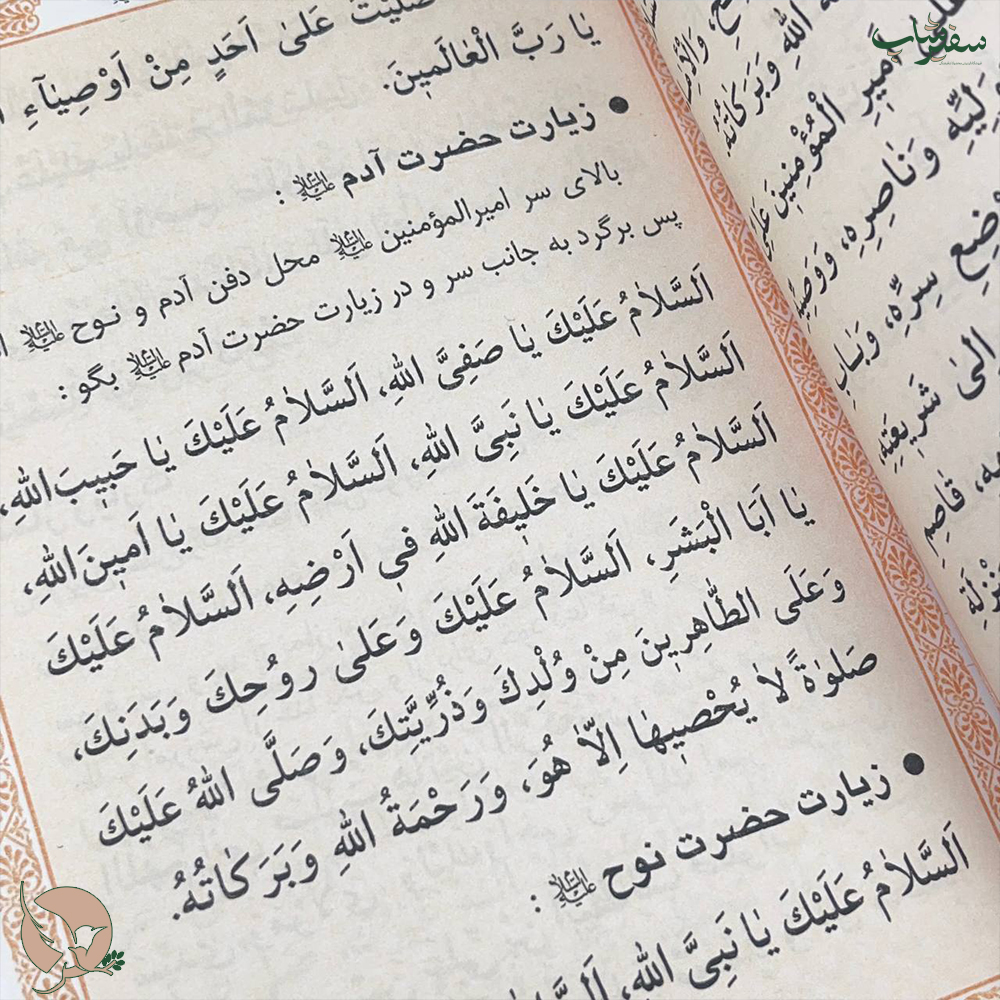 صَلَّيْتَ عَلىٰ اَحَدٍ مِنْ اَوْصِيٰآءِ
يٰا رَبَّ الْعٰالَمينَ.
● زیارت حضرت آدم علیه‌السلام :
بالای سر امیرالمؤمنین علیه‌السلام محل دفن آدم و نوح علیهماالسلام
پس برگرد به جانب سر و در زیارت حضرت آدم علیه‌السلام بگو :
اَلسَّلاٰمُ عَلَيْكَ يٰا صَفِىَّ اللهِ، اَلسَّلاٰمُ عَلَيْكَ يٰا حَبيبَ اللهِ،
اَلسَّلاٰمُ عَلَيْكَ يٰا نَبِىَّ اللهِ، اَلسَّلاٰمُ عَلَيْكَ يٰا اَمينَ اللهِ،
اَلسَّلاٰمُ عَلَيْكَ يٰا خَليفَةَ اللهِ في اَرْضِهِ، اَلسَّلاٰمُ عَلَيْكَ
يٰا اَبَا الْبَشَرِ، اَلسَّلاٰمُ عَلَيْكَ وَعَلىٰ روُحِكَ وَبَدَنِكَ،
وَعَلَى الطّٰاهِرينَ مِنْ وُلْدِكَ وَذُرِّيَّتِكَ، وَصَلَّى اللهُ عَلَيْكَ
صَلوٰةً لاٰ يُحْصيهٰا اِلاّٰ هُوَ، وَرَحْمَةُ اللهِ وَبَرَكٰاتُهُ.
● زیارت حضرت نوح علیه‌السلام :
اَلسَّلاٰمُ عَلَيْكَ يٰا نَبِىَّ اللهِ،
اللهِ وَبَرَكٰاتُهُ
اَميرِ الْمُؤْمِنينَ عَلِىِّ
وَلِيِّهِ وَنٰاصِرِهِ، وَوَصِيِّهِ
سِرِّهِ، وَبٰابِ
اِلىٰ شَريعَتِهِ
قٰاصِمِ
سفیریاب